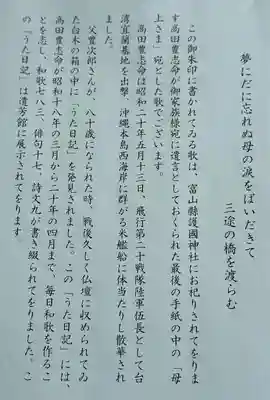 夢にだに忘れぬ母の涙をばいだきて
三途の橋を渡らむ
この御朱印に書かれてゐる歌は、富山縣護國神社にお祀りされてをりま
す高田豊志命が御家族様宛に遺言としておくられた最後の手紙の中の「母
上さま」宛とした歌でございます。
高田豊志命は昭和二十年五月十三日、飛行第二十戦隊陸軍伍長として台
湾宜蘭基地を出撃、沖縄本島西海岸に群がる米艦船に体当たりし散華され
ました。
父豊次郎さんが、八十歳になられた時、戦後久しく仏壇に収められてゐ
た白木の箱の中に「うた日記」を発見されました。この「うた日記」には、
高田豊志命が昭和十八年の三月から二十年の四月まで、毎日和歌を作るこ
とを志し、和歌七八三、俳句十七、詩文九が書き綴られてをりました。こ
の「うた日記」は遺芳館に展示されてをります。